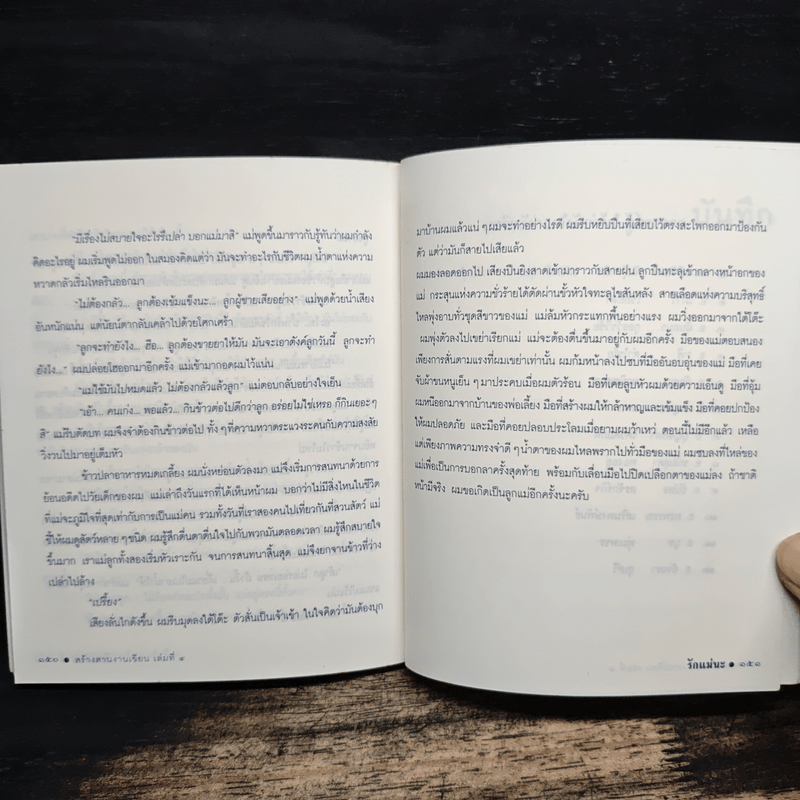 "มีเรื่องไม่สบายใจอะไรรึเปล่า บอกแม่มาสิ" แม่พูดขึ้นมาราวกับรู้ทันว่าผมกำลัง
คิดอะไรอยู่ ผมเริ่มพูดไม่ออก ในสมองคิดแต่ว่า มันจะทำอะไรกับชีวิตผม น้ำตาแห่งความ
หวาดกลัวเริ่มไหลรินออกมา
"ไม่ต้องกลัว... ลูกต้องเข้มแข็งนะ... ลูกผู้ชายเสียอย่าง" แม่พูดด้วยน้ำเสียง
อันหนักแน่น แต่นัยน์ตากลับเคล้าไปด้วยโศกเศร้า
"ลูกจะทำยังไง... ฮือ... ลูกต้องขายยาให้มัน มันจะเอาตังค์ลูกวันนี้ ลูกจะทำ
ยังไง..." ผมปล่อยโฮออกมาอีกครั้ง แม่เข้ามากอดผมไว้แน่น
"แม่ใช้มันไปหมดแล้ว ไม่ต้องกลัวแล้วลูก" แม่ตอบกลับอย่างใจเย็น
"เอ้า... คนเก่ง... พอแล้ว... กินข้าวต่อไปดีกว่าลูก อร่อยไม่ใช่เหรอ ก็กินเยอะๆ
สิ" แม่รีบตัดบท ผมจึงจำต้องกินข้าวต่อไป ทั้งๆ ที่ความหวาดระแวงระคนกับความสงสัย
วิ่งวนไปมาอยู่เต็มหัว
ข้าวปลาอาหารหมดเกลี้ยง ผมนั่งหย่อนตัวลงมา แม่จึงเริ่มการสนทนาด้วยการ
ย้อนอดีตไปวัยเด็กของผม แม่เล่าถึงวันแรกที่ได้เห็นหน้าผม บอกว่าไม่มีสิ่งไหนในชีวิต
ที่แม่จะภูมิใจที่สุดเท่ากับการเป็นแม่คน รวมทั้งวันที่เราสองคนไปเที่ยวกันที่สวนสัตว์ แม่
ชี้ให้ผมดูสัตว์หลายๆ ชนิด ผมรู้สึกตื่นตาตื่นใจไปกับพวกมันตลอดเวลา ผมรู้สึกสบายใจ
ขึ้นมาก เราแม่ลูกทั้งสองเริ่มหัวเราะกัน จนการสนทนาสิ้นสุด แม่จึงยกจานข้าวที่ว่าง
เปล่าไปล้าง
"เปรี้ยง"
เสียงลั่นไกดังขึ้น ผมรีบมุดลงใต้โต๊ะ ตัวสั่นเป็นเจ้าเข้า ในใจคิดว่ามันต้องบุก
๑๕๐ ● สร้างสานงานเขียน เล่มที่ ๙
มาบ้านผมแล้วแน่ๆ ผมจะทำอย่างไรดี ผมรีบหยิบปืนที่เสียบไว้ตรงสะโพกออกมาป้องกัน
ตัว แต่ว่ามันก็สายไปเสียแล้ว
ผมมองลอดออกไป เสียงปืนยิงสาดเข้ามาราวกับสายฝน ลูกปืนทะลุเข้ากลางหน้าอกของ
แม่ กระสุนแห่งความชั่วร้ายได้ตัดผ่านขั้วหัวใจทะลุไขสันหลัง สายเลือดแห่งความบริสุทธิ์
ไหลพุ่งอาบทั่วชุดสีขาวของแม่ แม่ล้มหัวกระแทกพื้นอย่างแรง ผมวิ่งออกมาจากใต้โต๊ะ
ผมพุ่งตัวลงไปเขย่าเรียกแม่ แม่จะต้องตื่นขึ้นมาอยู่กับผมอีกครั้ง มือของแม่ตอบสนอง
เพียงการสั่นตามแรงที่ผมเขย่าเท่านั้น ผมก้มหน้าลงไปซบที่มืออันอบอุ่นของแม่ มือที่เคย
จับผ้าขนหนูเย็นๆ มาประคบเมื่อผมตัวร้อน มือที่เคยลูบหัวผมด้วยความเอ็นดู มือที่อุ้ม
ผมหนีออกมาจากบ้านของพ่อเลี้ยง มือที่สร้างผมให้กล้าหาญและเข้มแข็ง มือที่คอยปกป้อง
ให้ผมปลอดภัย และมือที่คอยปลอบประโลมเมื่อยามผมว้าเหว่ ตอนนี้ไม่มีอีกแล้ว เหลือ
แต่เพียงภาพความทรงจำดีๆ น้ำตาของผมไหลพรากไปทั่วมือของแม่ ผมซบลงที่ไหล่ของ
แม่เพื่อเป็นการบอกลาครั้งสุดท้าย พร้อมกับเลื่อนมือไปปิดเปลือกตาของแม่ลง ถ้าชาติ
หน้ามีจริง ผมขอเกิดเป็นลูกแม่อีกครั้งนะครับ
รักแม่นะ ● ๑๕๑